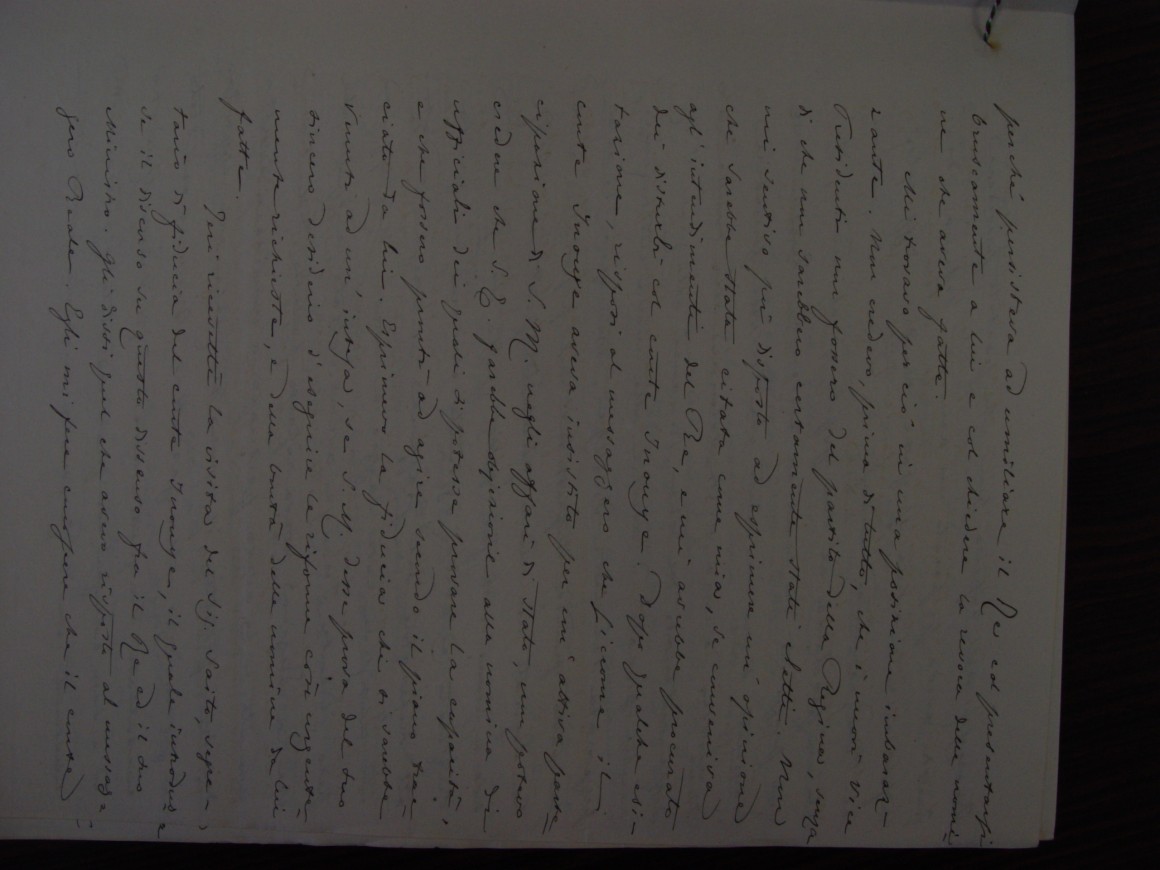 perché persisteva ad umiliare il Re col presentarsi
bruscamente a lui e col chiedere la revoca delle nomi=
ne che aveva fatte.
Mi trovavo perciò in una posizione imbaraz-
zante. Non credevo, prima di tutto, che i nuovi Vice
Presidenti non fossero del partito della Regina, senza
di che non sarebbero certamente stati eletti. Non
mi sentivo poi disposto ad esprimere un'opinione
che sarebbe stata citata come mia, se conveniva
agl'intendimenti del Re, e mi avrebbe procurato
dei disturbi col conte Inouye. Dopo qualche esi-
tazione, risposi al messaggero che siccome il
conte Inouye aveva insistito per un'attiva parte=
cipazione di S. M. negli affari di Stato, non potevo
credere che S. E. farebbe obbiezione alla nomina di
ufficiali dei quali si potesse provare la capacità,
e che fossero pronti ad agire secondo il piano trac=
ciato da lui. Espressi la fiducia che si sarebbe
venuti ad un'intesa, se S. M. desse prova del suo
sincero desiderio d'eseguire le riforme così urgente=
mente richieste, e della bontà delle nomine da lui
fatte.
Poi ricevetti la visita del Sig. Saito, segre-
tario di fiducia del conte Inouye, il quale introdusse
il discorso su questo dissenso fra il Re ed il suo
Ministro. Gli dissi quel che avevo risposto al messag=
gero Reale. Egli mi fece capire che il conte